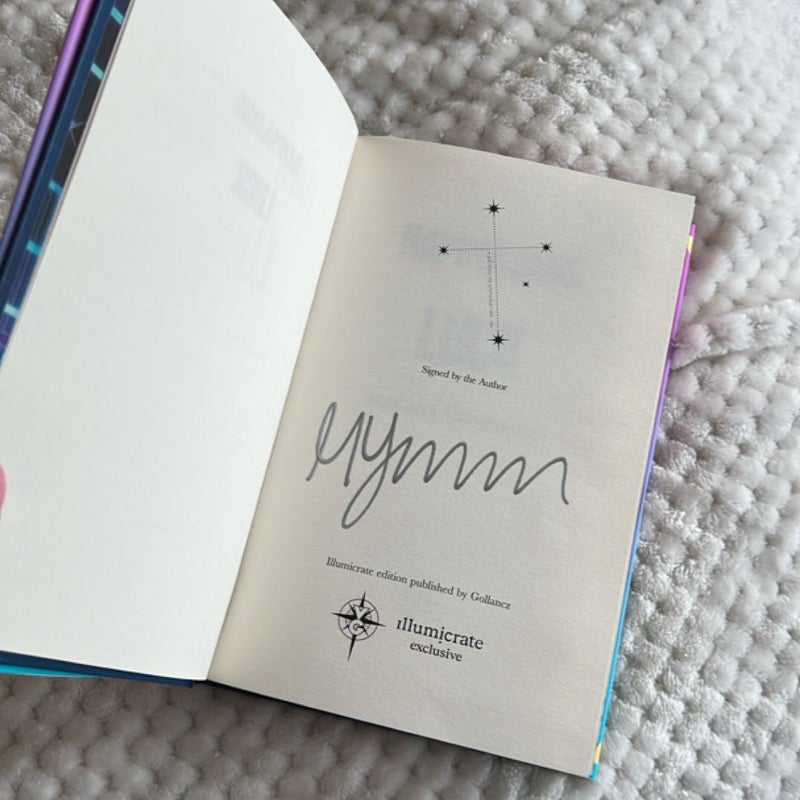 Signed by the Author
Illumicrate edition published by Gollancz
ıllumıcrate
exclusive